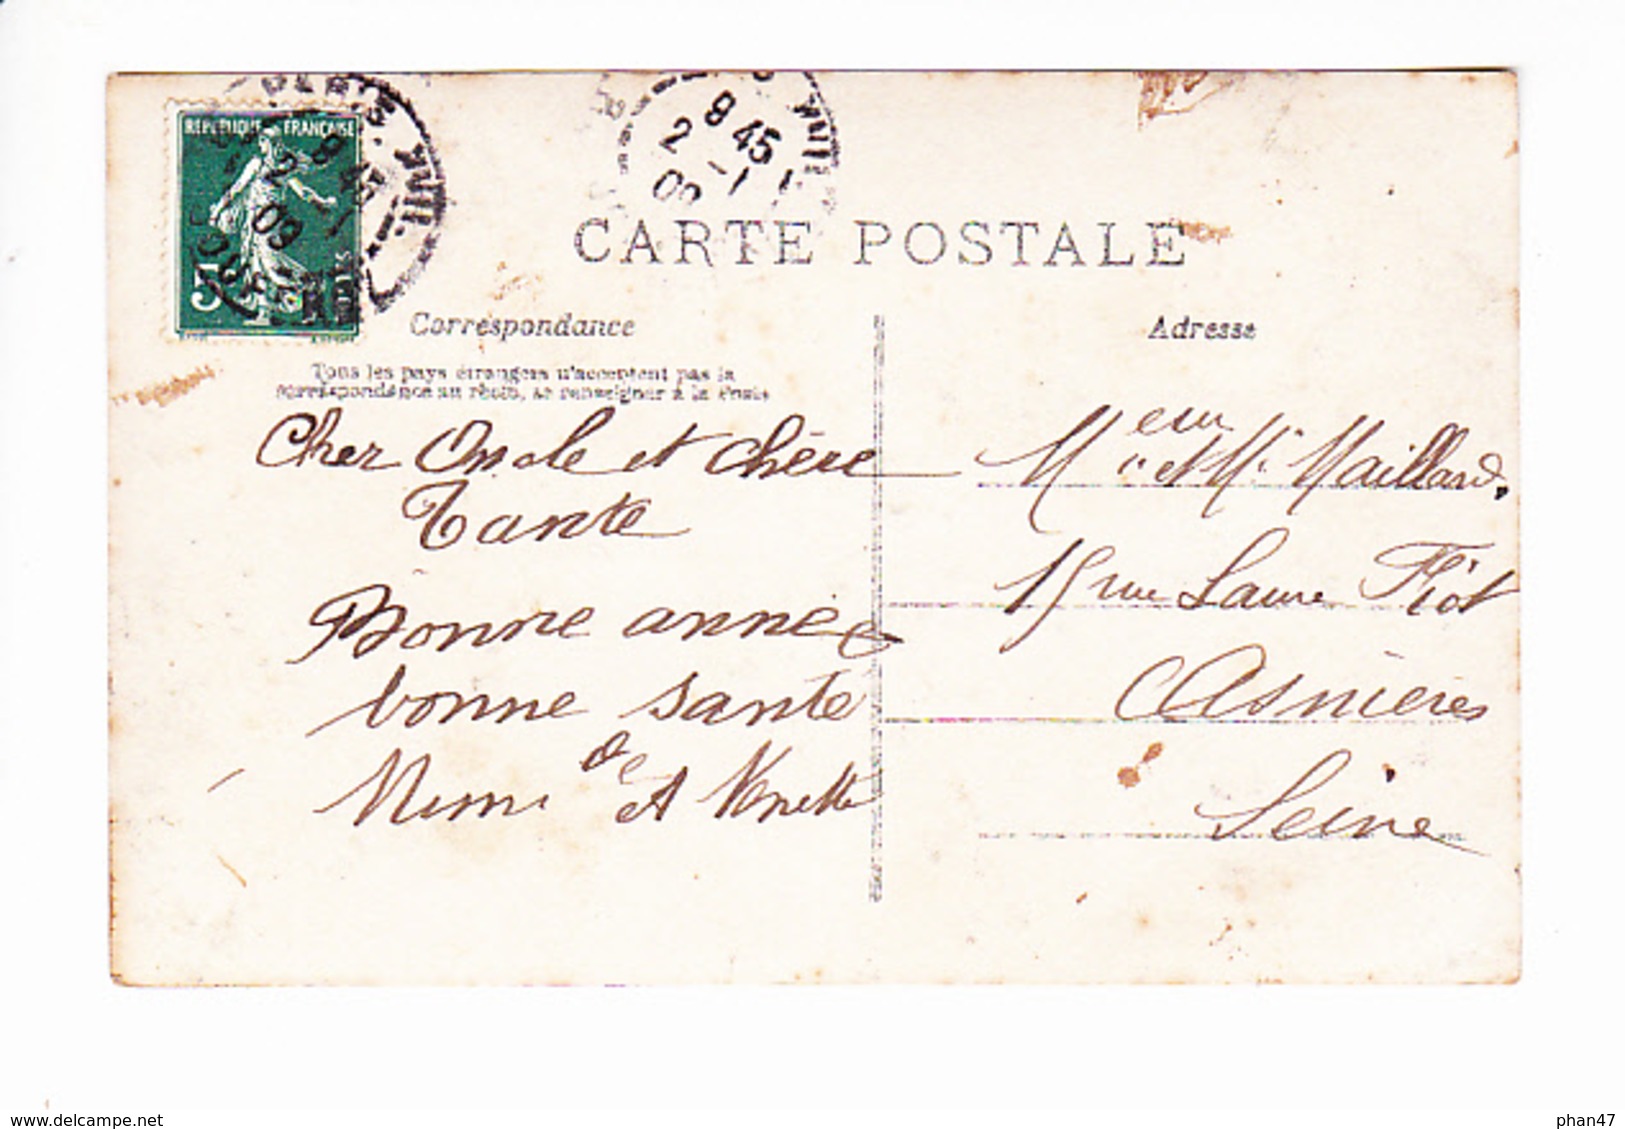 REPUBLIQUE FRANÇAISE
5
PARIS
9 45
2 -1
09
CARTE POSTALE
Correspondance
Tous les pays étrangers n'acceptent pas la
correspondance au recto, se renseigner à la Poste
Cher Oncle et chère
Tante
Bonne année
bonne santé
de
Mimi et Nenette
Adresse
Meur et Me Maillard
15 rue Laure Fiot
Asnières
Seine
www.delcampe.net
phan47